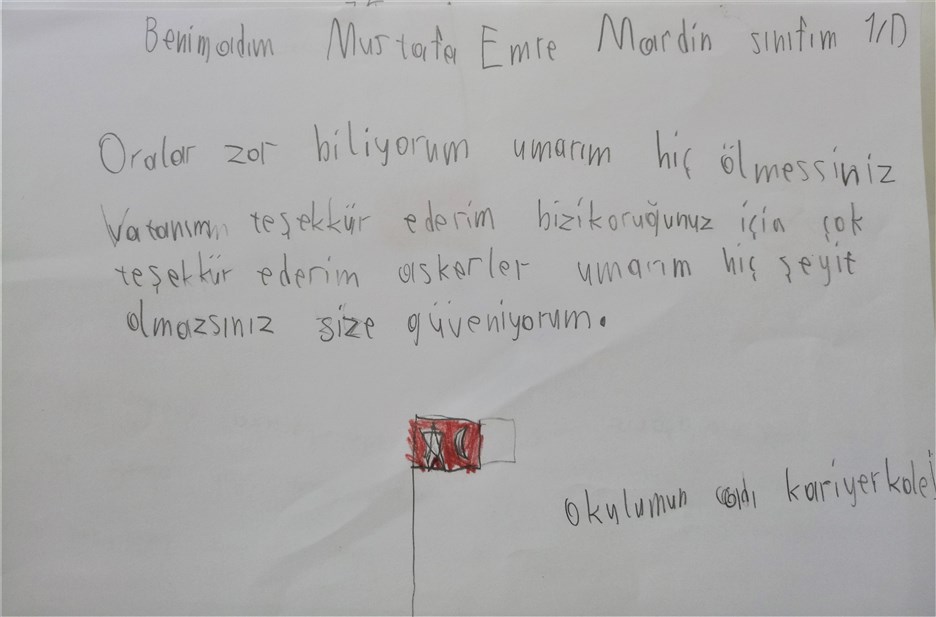 Benimadım Mustafa Emre Mardin sınıfım 1/D
Oralar zor biliyorum umarım hiç ölmessiniz
Vatanımı teşekkür ederim bizikoruğunuz için çok
teşekkür ederim askerler umarım hiç şeyit
olmazsınız size güveniyorum.
okulumun adı kariyerkoleji